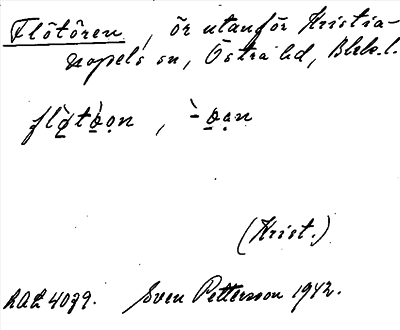 Flötören, ör utanför Kristia-
nopels sn, Östra hd, Blek.l.
flø̀tøọn, -̀øạn
(Krist.)
RAÄ 4079. Sven Pettersson 1942.